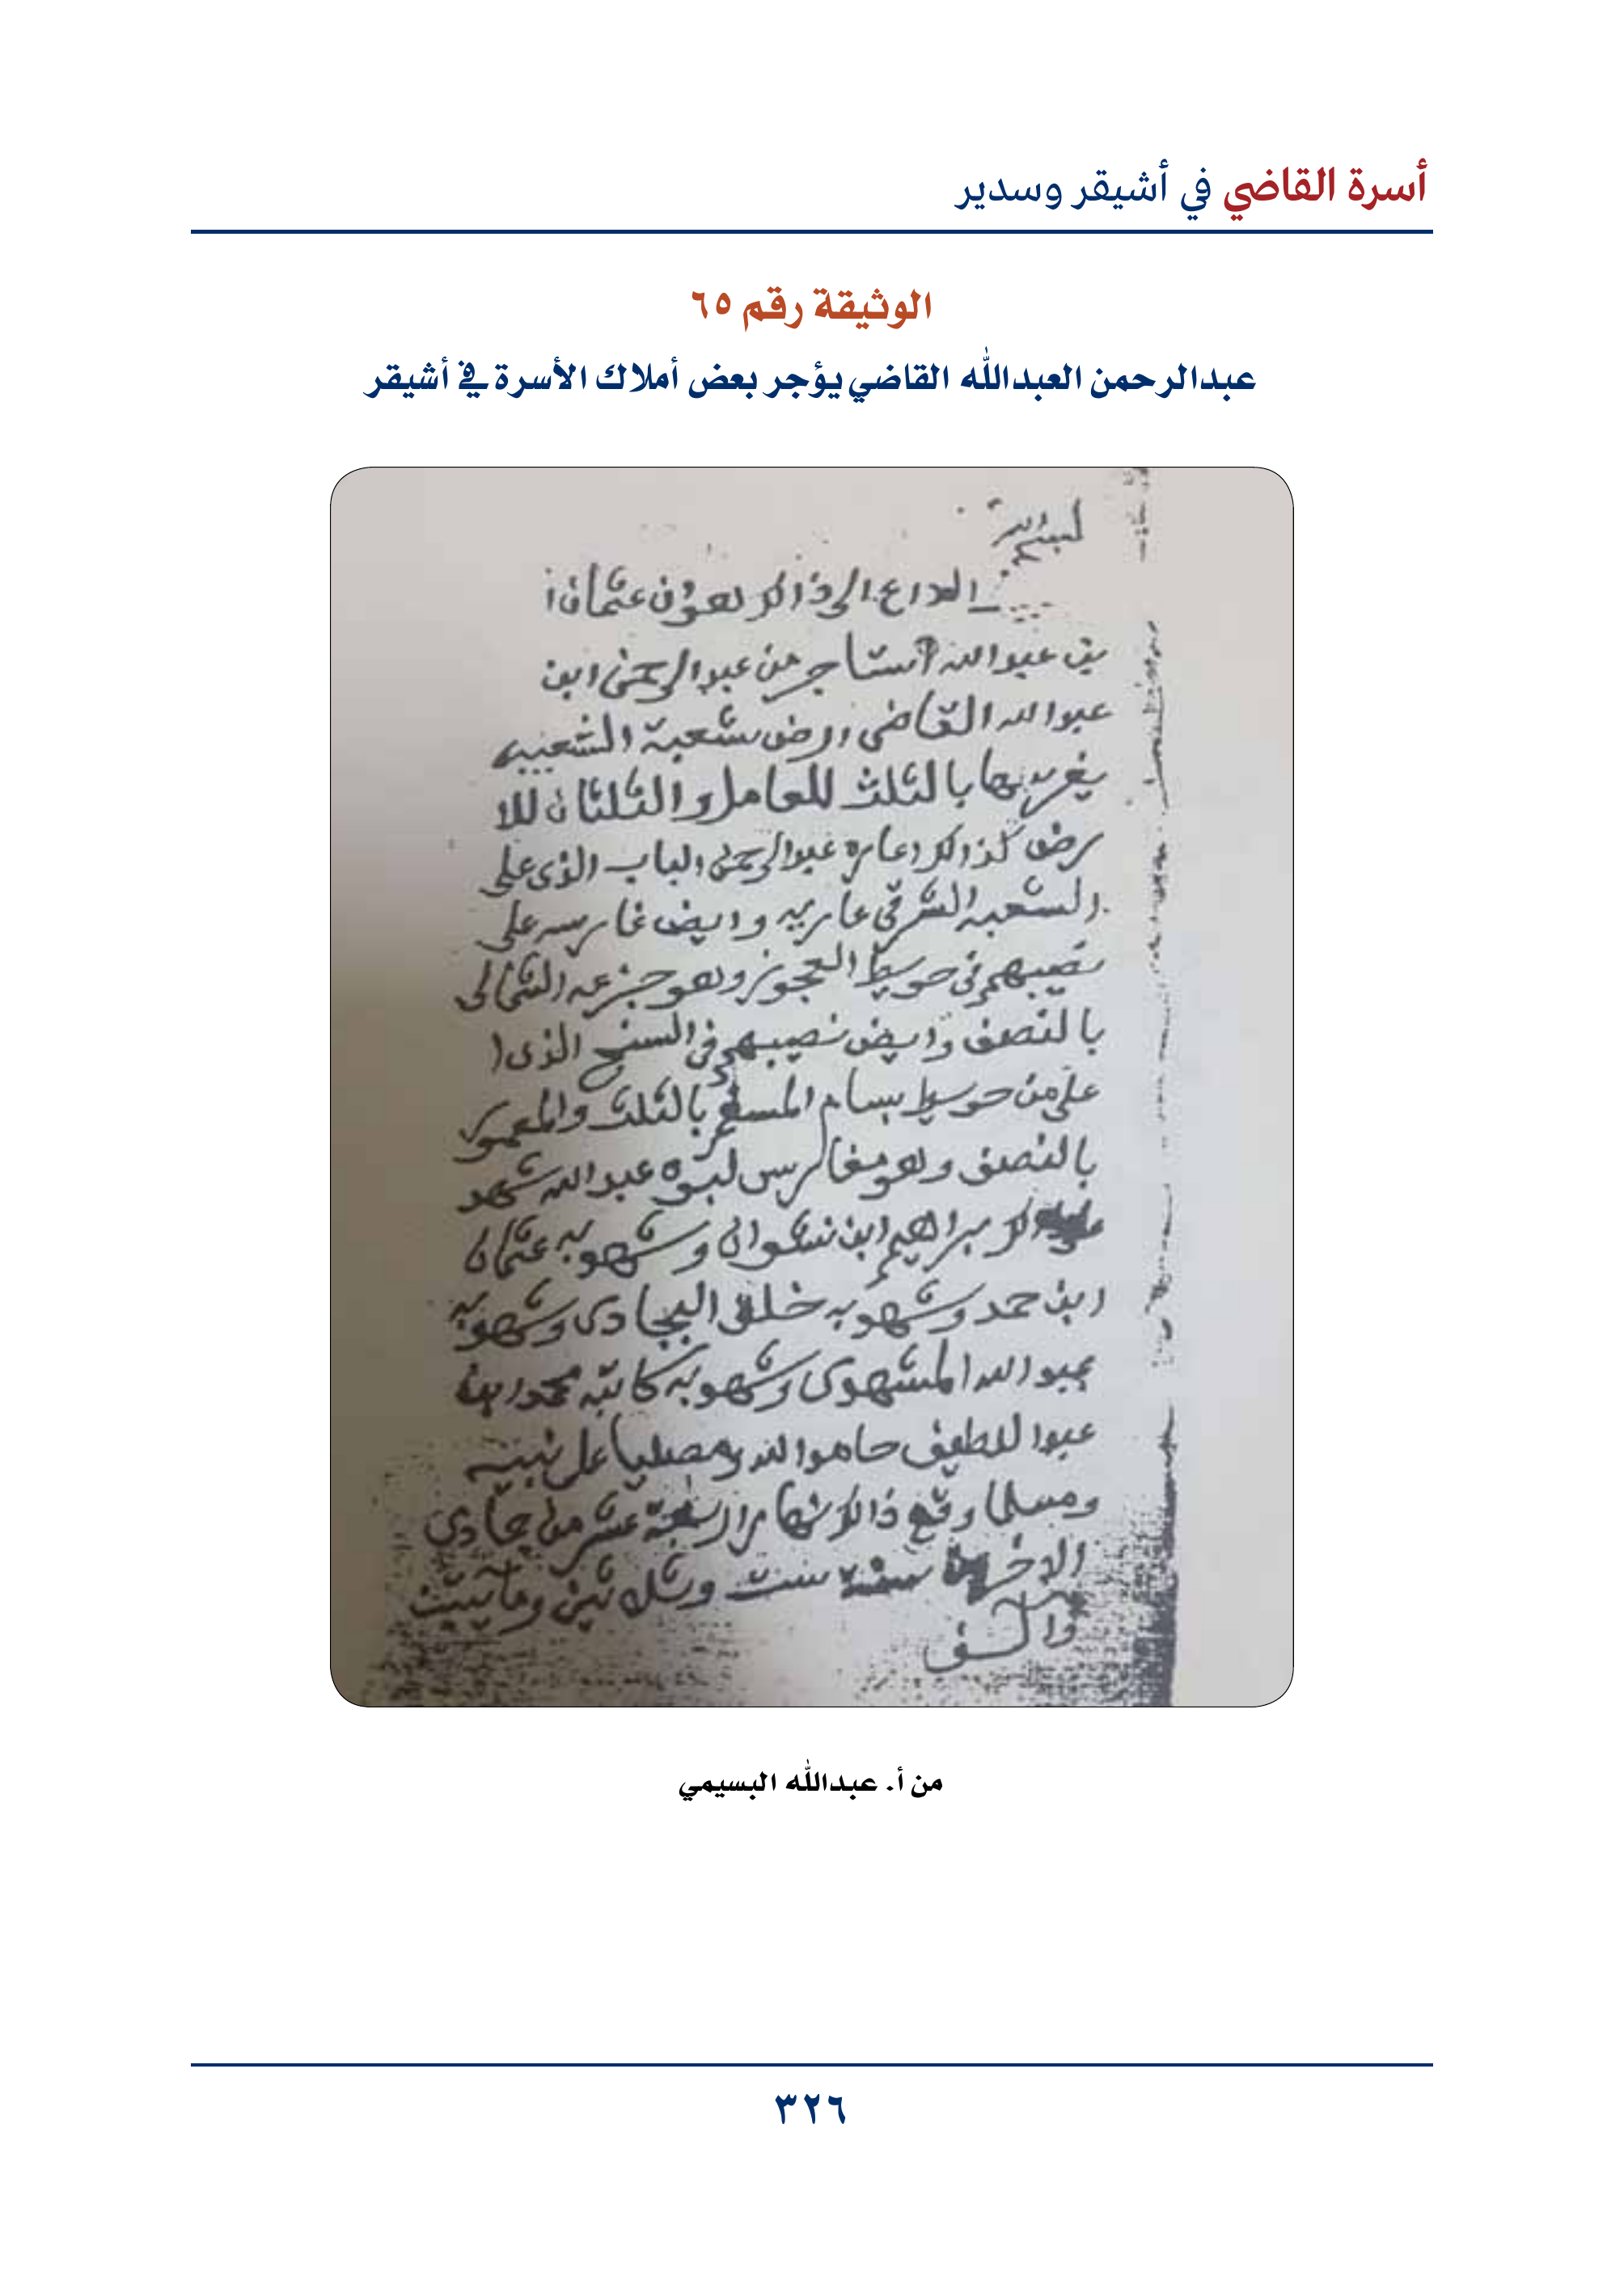 أسرة القاضي في أشيقر وسدير
الوثيقة رقم ٦٥
عبدالرحمن العبدالله القاضي يؤجر بعض أملاك الأسرة في أشيقر
الداع الى ذالك هو ان عثمان ا
بن عبدالله استاجر من عبدالرحمن ابن
عبدالله القاضي ارض شعبة الشعيبيه
يغرسها بالثلث للعامل والثلثان للا
رض كذالك اعاره عبدالرحمن الباب الذي على
الشعبه الشرقي عاريه وايض غارسه على
نصيبهم في حويط العجوز وهو جزعه الشمالي
بالنصف وايض نصيبهم في الذي ا
على من حويط بسام بالثلث والمعمور
بالنصف وهو مغارس لبوه عبدالله شهد
على ذالك براهيم ابن نشوان وشهد به عثمان
ابن حمد وشهد به خلف البجادي وشهد به
عبدالله المشهدي وشهد به كاتبه محمد ابن
عبدا للطيف حامدا لله ومصليا على نبيه
ومسلما وقع ذالك نهار اربعة عشر من جمادى
الاخر سنة ست وثلاثين ومايتين
والف
من أ. عبدالله البسيمي
٣٢٦